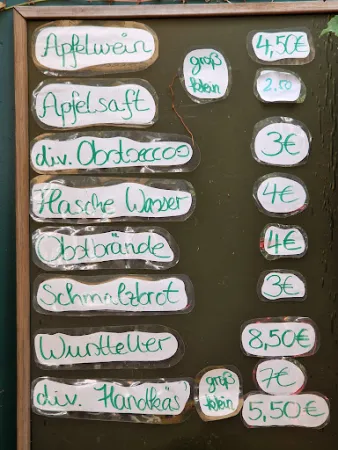 Apfelwein groß 4,50€
Apfelsaft klein 2.50
div. Obstsecco 3€
Flasche Wasser 4€
Obstbrände 4€
Schmalzbrot 3€
Wurstteller 8,50€
div. Handkäs' groß 7€
klein 5,50€